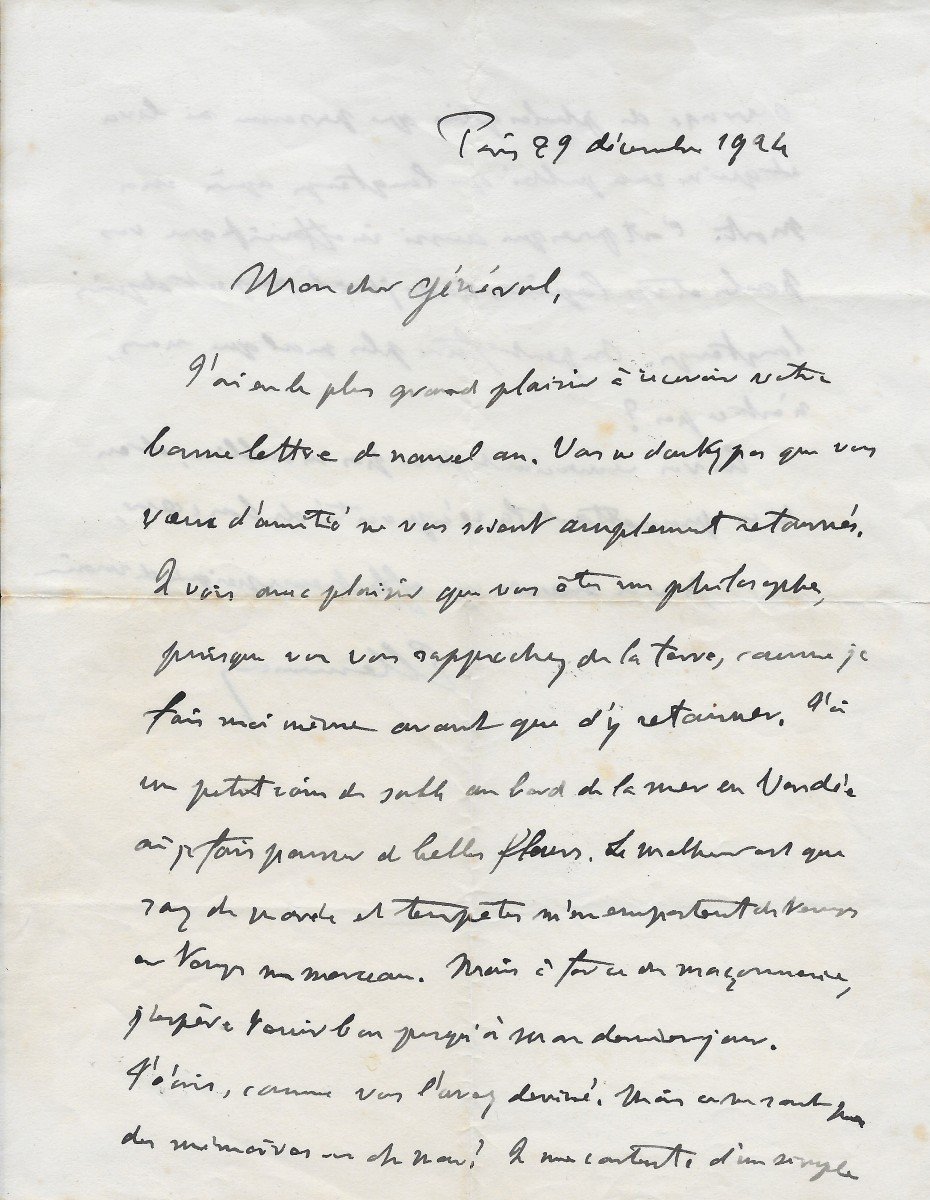 Paris 29 décembre 1924
Mon cher Général,
J'ai eu le plus grand plaisir à recevoir votre
bonne lettre de nouvel an. Vous ne doutez pas que vos
vœux d'amitié ne vous soient amplement retournés.
Je vois avec plaisir que vous êtes un philosophe,
puisque vous vous rapprochez de la terre, comme je
fais moi même avant que d'y retourner. J'ai
un petit coin de sable au bord de la mer en Vendée
où je fais pousser de belles fleurs. Le malheur est que
raz de marée et tempêtes m'en emportent de temps
en temps un morceau. Mais à force de maçonnerie,
j'espère tenir bon jusqu'à mon dernier jour.
J'écris, comme vous l'avez deviné. Mais ce ne sont pas
des mémoires, oh non! Je me contente d'un simple